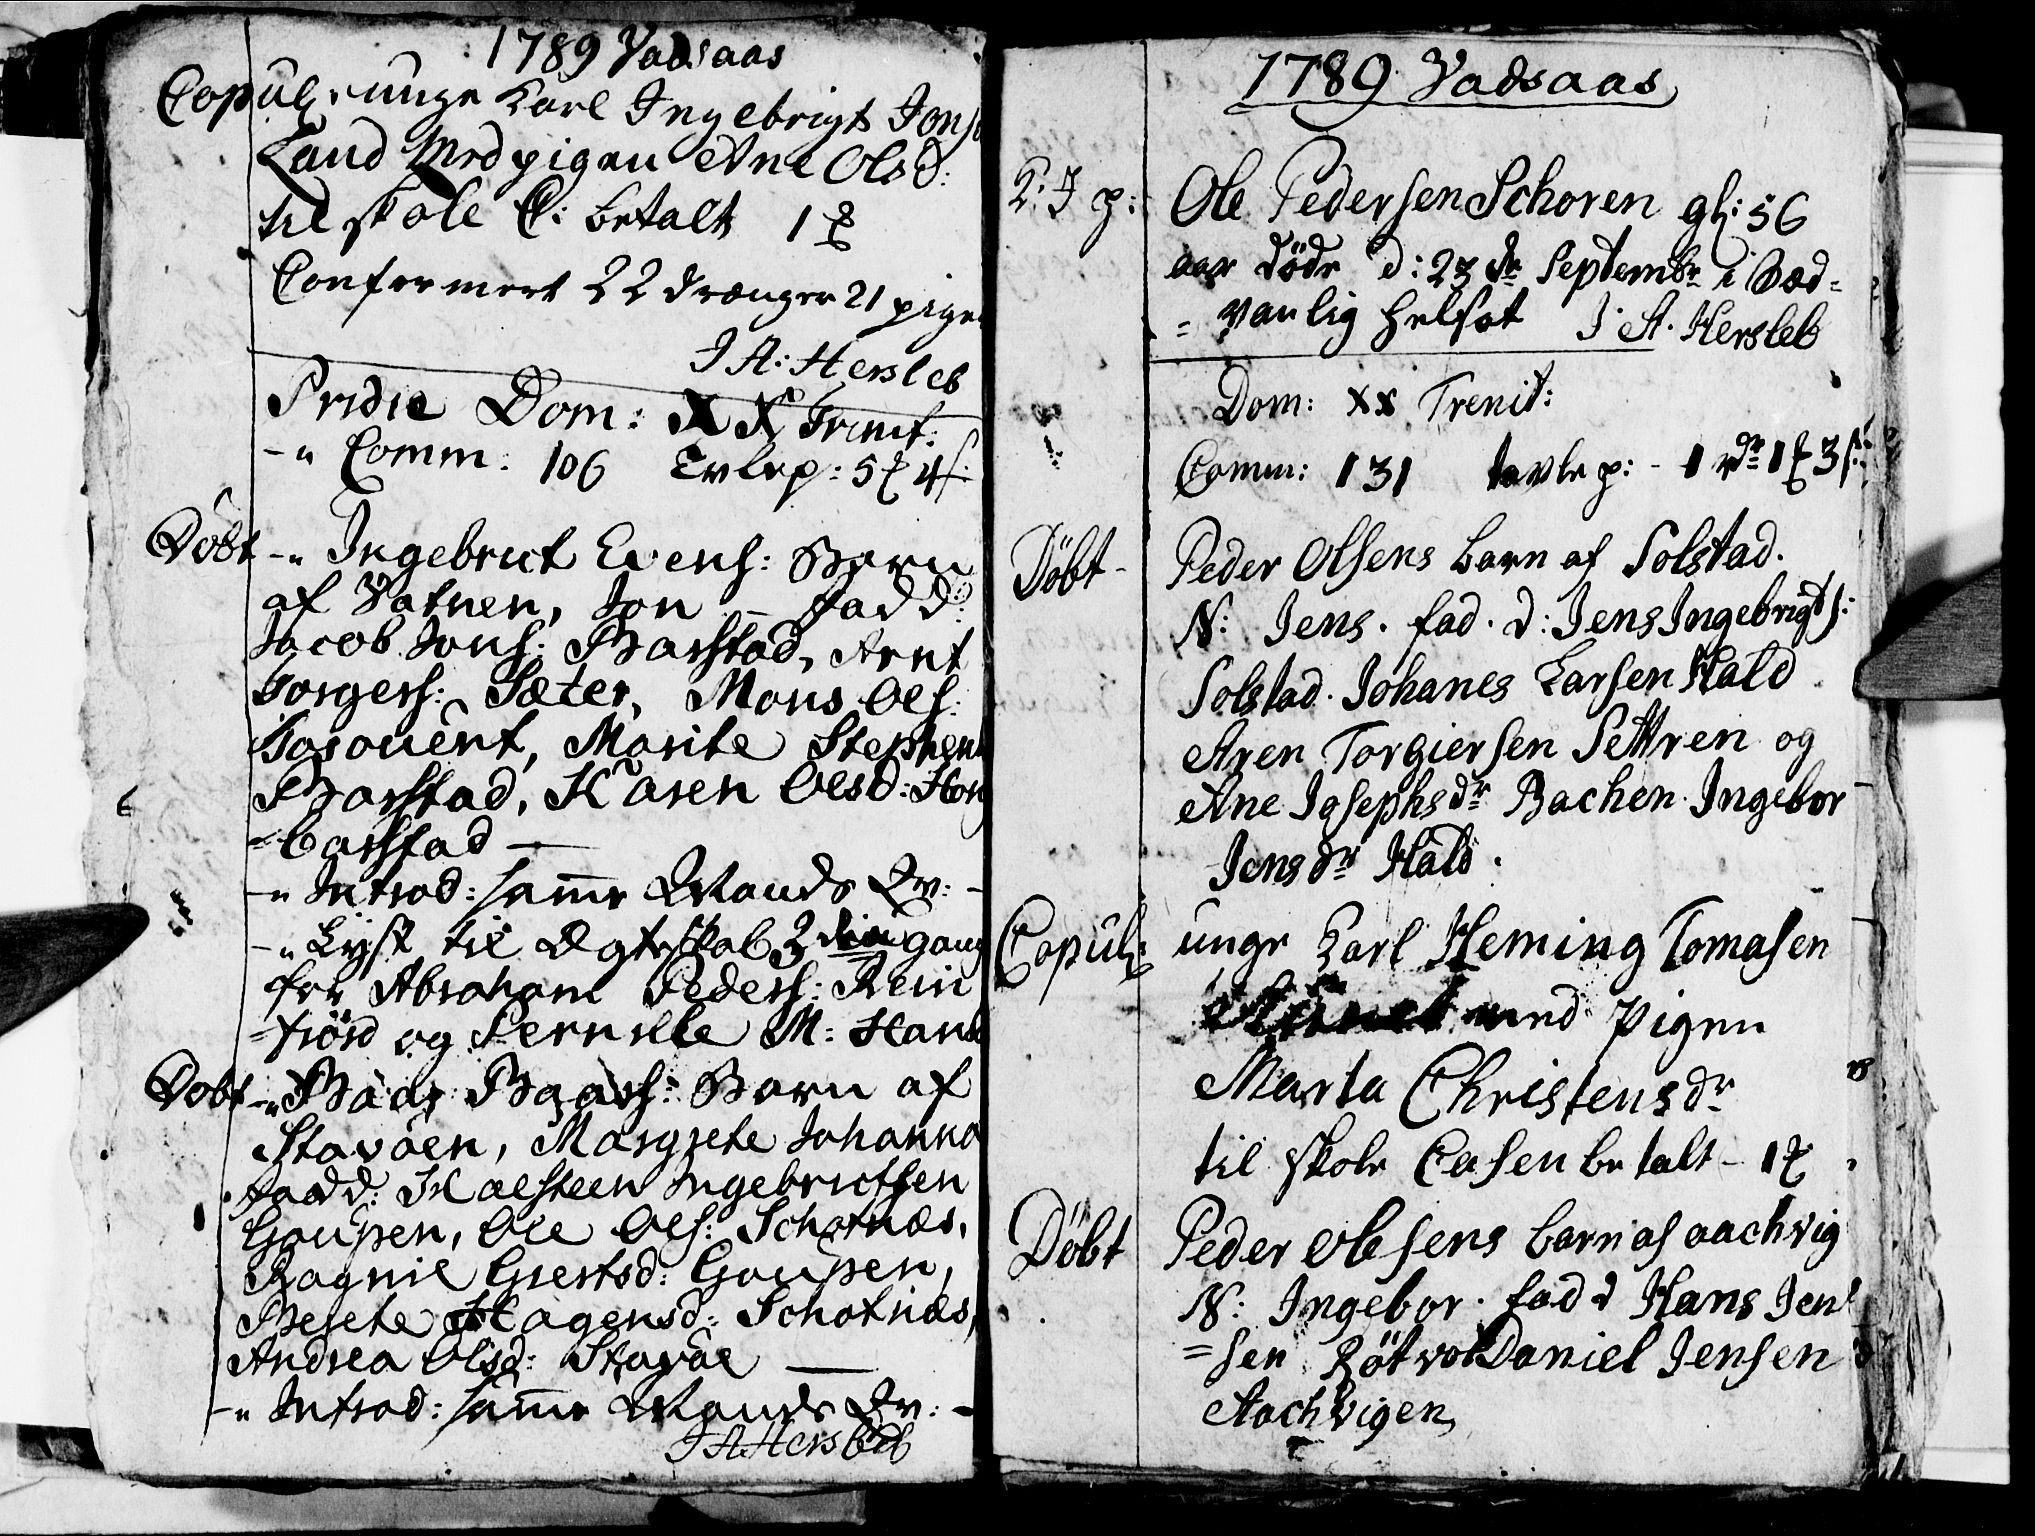 1789 Vadsaas
Copul: unge Karl Ingebrigt Jons
Land Med pigen Ane Olsd:
til skole C: betalt 1
Confermert 22 drænger 21 pige
J A: Hersleb
Pridie Dom: XX Trinit:
-" Comm: 106 Tvlep: 5 4
Döbt -" Ingebrict Evens: Barn
af Vatnen, Jon - fadd:
Jacob Jons: Barstad, Arnt
Torgers: Sæter, Mons Ols:
Marite Stephens
Barstad, Karen Olsd: Hong
=barstad
-" Introd: samme Mands Qv: -
-" Lyst til Ægteskab 3 die gang
for Abraham Peders: Rein
=fiörd og Pernille M: Hans
Döbt -" Baar Baars: Barn af
Stavöen, Margrete Johanna
fadd: Halsteen Ingebrictsen
Goupen, Ole Ols: Schotnæs,
Ragnil Giertsd: Goupen,
Berete Hagensd: Schotnæs,
Andrea Olsd: Stavöe
-" Introd: samme Mands Qv: -
J A Hersleb
1789 Vadsaas
J p: Ole Pedersen Schoren gl: 56
aar döde d: 23 de Septembr i Sæd=
= vanlig helsot J. A. Hersleb
Dom: XX Trenit:
Comm: 131 tavle p: - 1 rdr 1 3 s:
Döbt - Peder Olsens barn af Solstad.
N: Jens. fad. d: Jens Ingebrigts:
Solstad. Johanes Larsen Hald
Aren Torgiersen Settren og
Ane Josephsdr Bachen Ingebor
Jensdr Hald.
Copul: unge Karl Heming Tomasen
med Pigen
Marta Christensdr
til skole Casen betalt - 1
Döbt Peder Olesens barn af aachvig
N: Ingebor. fad d Hans Jen
=sen Rötvol Daniel Jensen
Aachvigen